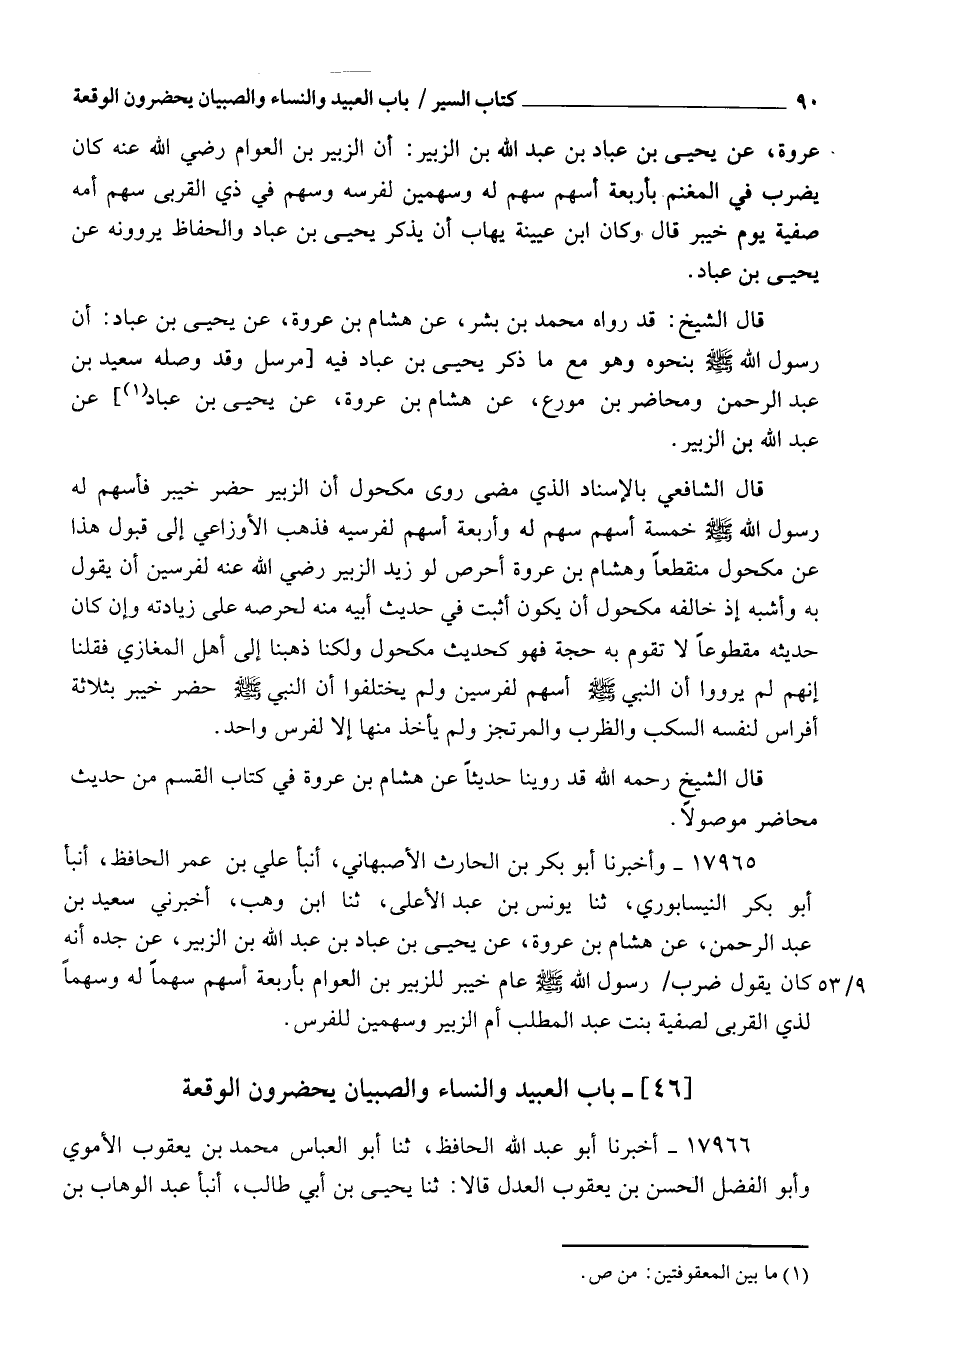 ٩٠ ــــــــــــــــــــ كتاب السير / باب العبيد والنساء والصبيان يحضرون الوقعة
عروة، عن يحيى بن عباد بن عبد الله بن الزبير: أن الزبير بن العوام رضي الله عنه كان
يضرب في المغنم بأربعة أسهم سهم له وسهمين لفرسه وسهم في ذي القربى سهم أمه
صفية يوم خيبر قال وكان ابن عيينة يهاب أن يذكر يحيى بن عباد والحفاظ يروونه عن
يحيى بن عباد.
قال الشيخ: قد رواه محمد بن بشر، عن هشام بن عروة، عن يحيى بن عباد: أن
رسول الله ﷺ بنحوه وهو مع ما ذكر يحيى بن عباد فيه [مرسل وقد وصله سعيد بن
عبد الرحمن ومحاضر بن مورع، عن هشام بن عروة، عن يحيى بن عباد(١)] عن
عبد الله بن الزبير.
قال الشافعي بالإسناد الذي مضى روى مكحول أن الزبير حضر خيبر فأسهم له
رسول الله ﷺ خمسة أسهم سهم له وأربعة أسهم لفرسيه فذهب الأوزاعي إلى قبول هذا
عن مكحول منقطعاً وهشام بن عروة أحرص لو زيد الزبير رضي الله عنه لفرسين أن يقول
به وأشبه إذ خالفه مكحول أن يكون أثبت في حديث أبيه منه لحرصه على زيادته وإن كان
حديثه مقطوعاً لا تقوم به حجة فهو كحديث مكحول ولكنا ذهبنا إلى أهل المغازي فقلنا
إنهم لم يرووا أن النبي ﷺ أسهم لفرسين ولم يختلفوا أن النبي ﷺ حضر خيبر بثلاثة
أفراس لنفسه السكب والظرب والمرتجز ولم يأخذ منها إلا لفرس واحد.
قال الشيخ رحمه الله قد روينا حديثاً عن هشام بن عروة في كتاب القسم من حديث
محاضر موصولاً.
١٧٩٦٥ ـ وأخبرنا أبو بكر بن الحارث الأصبهاني، أنبأ علي بن عمر الحافظ، أنبأ
أبو بكر النيسابوري، ثنا يونس بن عبد الأعلى، ثنا ابن وهب، أخبرني سعيد بن
عبد الرحمن، عن هشام بن عروة، عن يحيى بن عباد بن عبد الله بن الزبير، عن جده أنه
٥٣/٩ كان يقول ضرب/ رسول الله ﷺ عام خيبر للزبير بن العوام بأربعة أسهم سهماً له وسهماً
لذي القربى لصفية بنت عبد المطلب أم الزبير وسهمين للفرس.
[٤٦] ـ باب العبيد والنساء والصبيان يحضرون الوقعة
١٧٩٦٦ ـ أخبرنا أبو عبد الله الحافظ، ثنا أبو العباس محمد بن يعقوب الأموي
وأبو الفضل الحسن بن يعقوب العدل قالا: ثنا يحيى بن أبي طالب، أنبأ عبد الوهاب بن
(١) ما بين المعقوفتين: من ص.